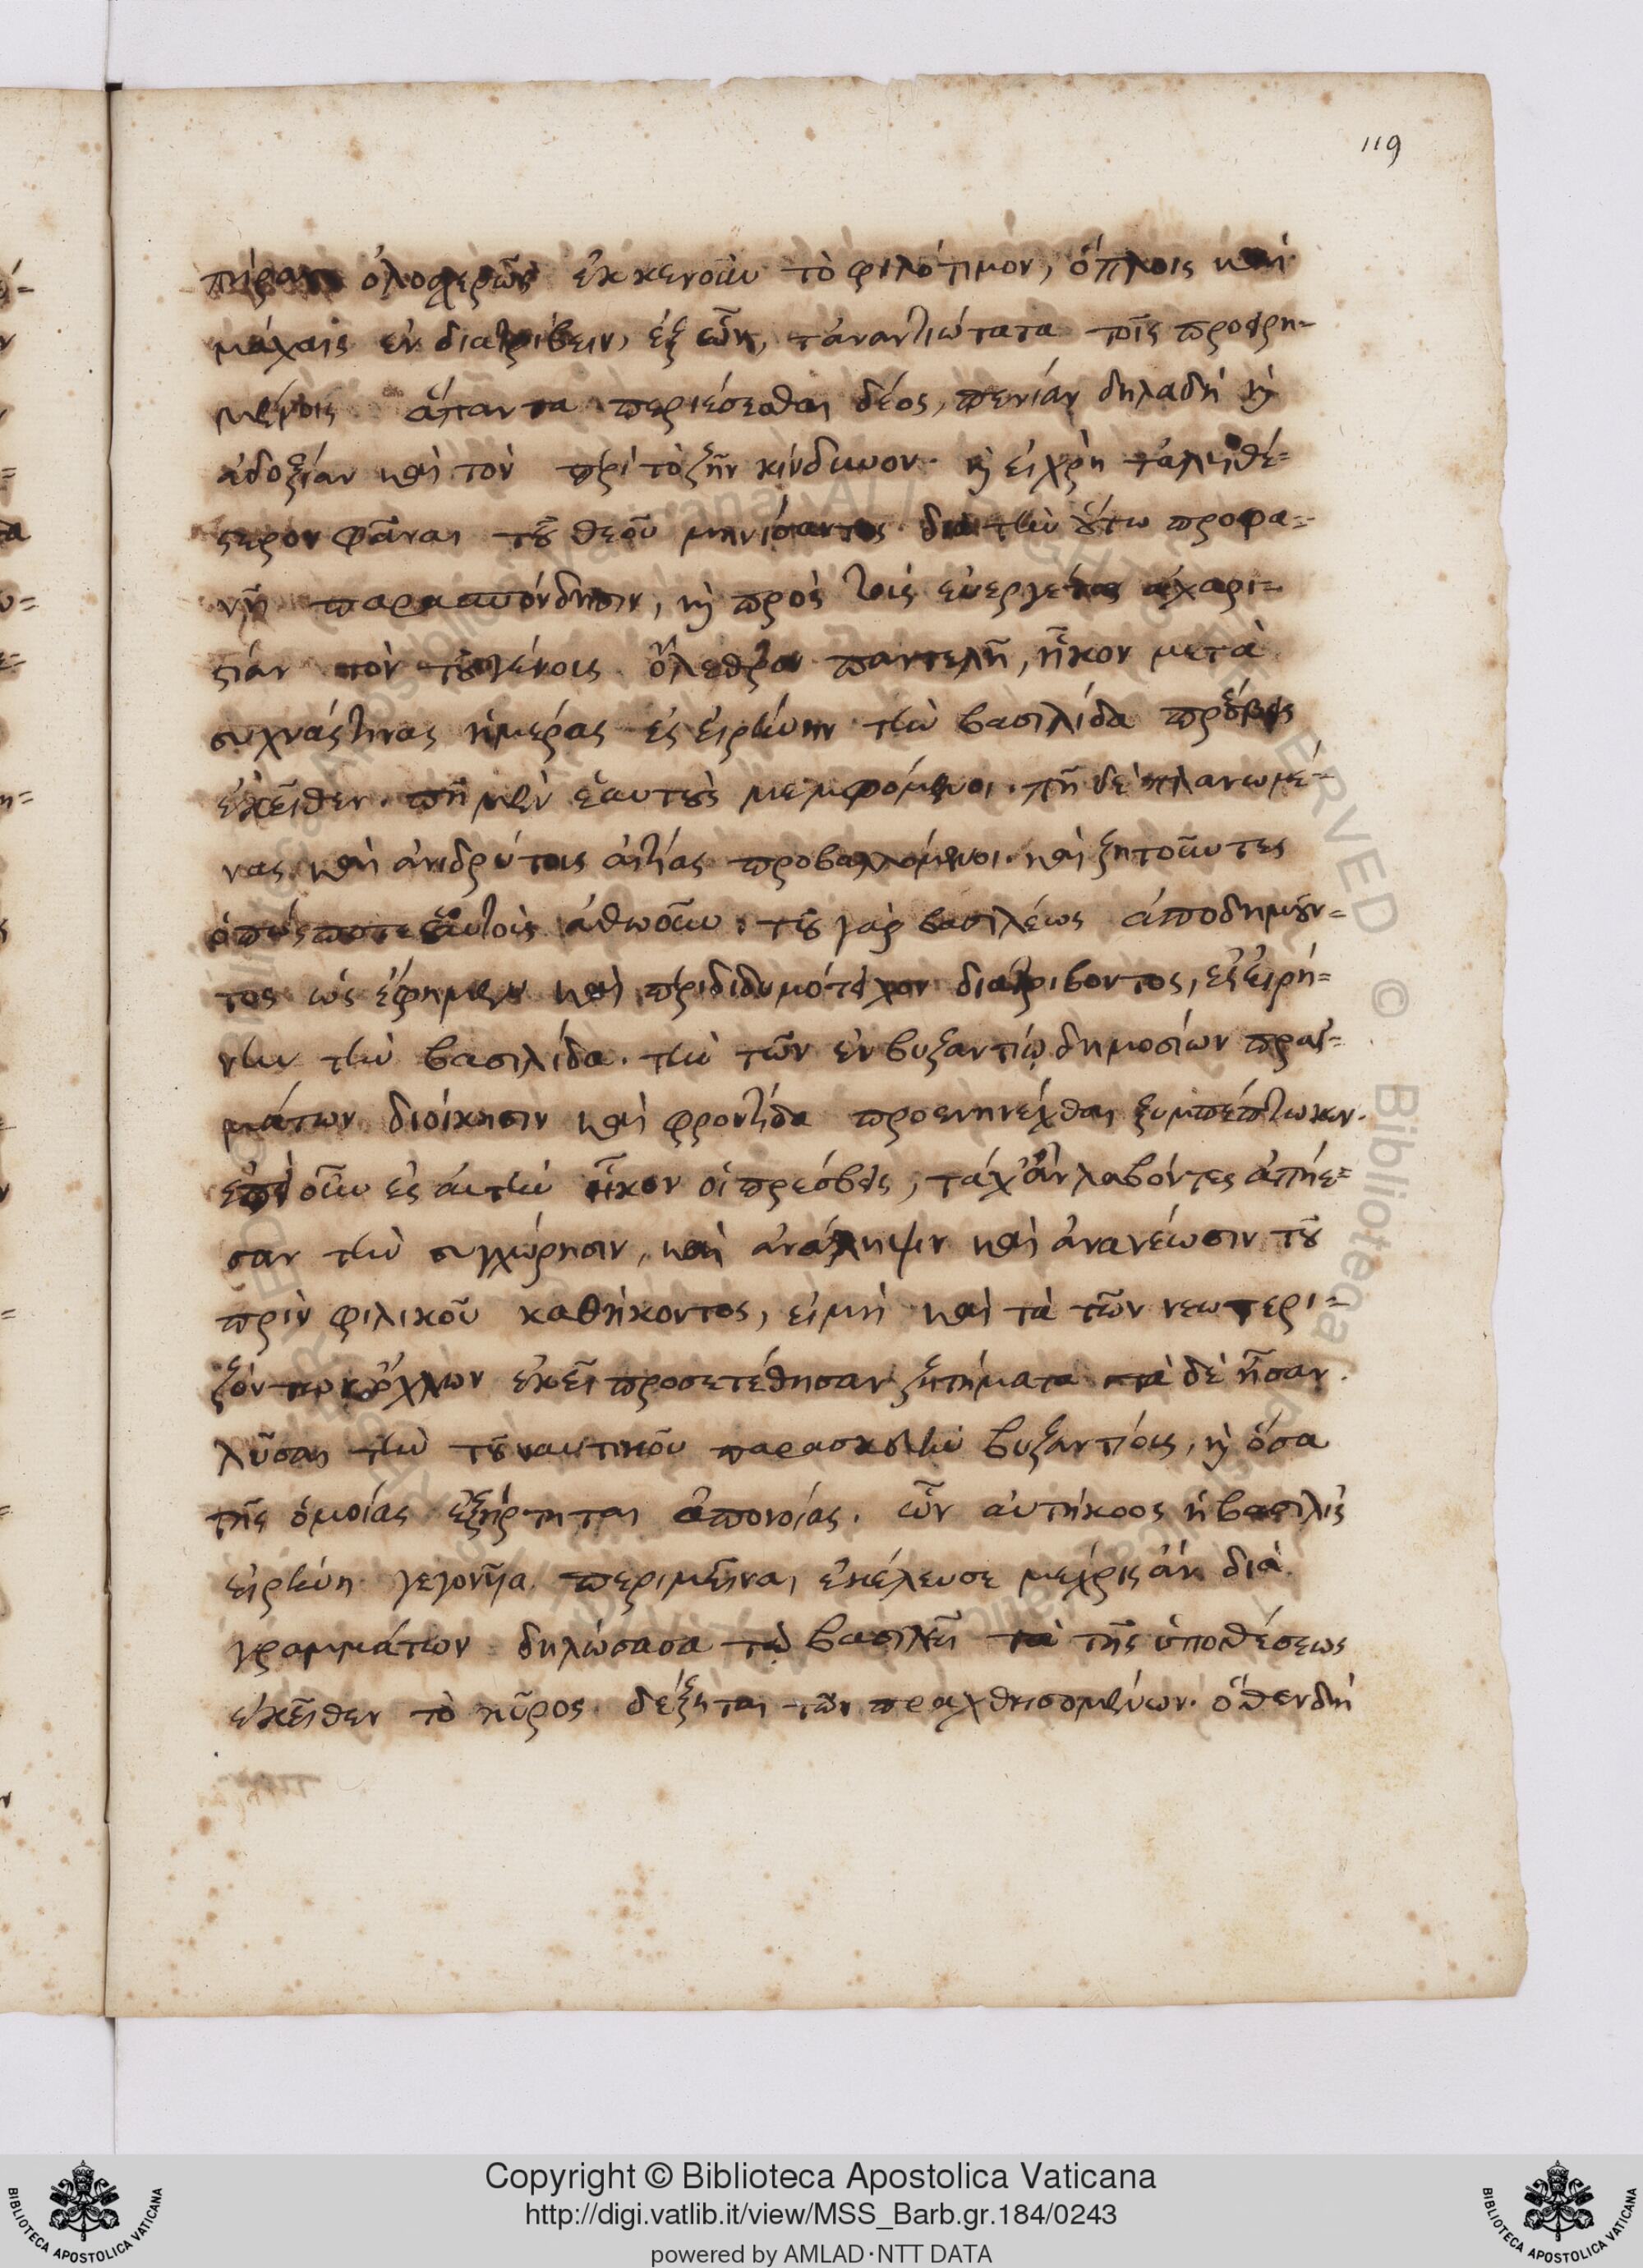 119
ὁλοσχερῶς ἐκκενοῦν τὸ φιλότιμον, ὅπλοις καὶ
μάχαις ἐνδιατρίβειν, ἐξ ὧν, τἀναντιώτατα τοῖς προειρη-
μένοις ἅπαντα περιέσεσθαι δέος, πενίαν δηλαδὴ καὶ
ἀδοξίαν καὶ τὸν περὶ τὸ ζῆν κίνδυνον. καὶ εἰ χρὴ τἀληθέ=
στερον φᾶναι τοῦ θεοῦ μηνίσαντος διὰ τὴν οὕτω προφα=
νῆ παρασπόνδησιν, καὶ πρὸς τοὺς εὐεργέτας ἀχαρι=
στίαν τὸν τοῦ γένους ὄλεθρον παντελῆ, ἧκον μετὰ
συχνάς τινας ἡμέρας ἐς εἰρήνην τὴν βασιλίδα πρέσβεις
ἐκεῖθεν. πῆ μὲν ἑαυτοὺς μεμφόμενοι. πῆ δὲ πλανωμέ-
νας καὶ ἀνιδρύτους αἰτίας προβαλλόμενοι. καὶ ζητοῦντες
ὁπώσποτε αὐτοὺς ἀθωοῦν. τοῦ γὰρ βασιλέως ἀποδημοῦν=
τος ὡς ἔφημεν καὶ περὶ διδυμότειχον διατρίβοντος, ἐς εἰρή=
νην τὴν βασιλίδα. τὴν τῶν ἐν βυζαντίῳ δημοσίων πραγ=
μάτων διοίκησιν καὶ φροντίδα προσενηνέχθαι ξυμπέπτωκεν.
ἐπεὶ οὖν ἐς αὐτὴν ἧκον οἱ πρέσβεις, τάχ' ἂν λαβόντες ἀπῄε=
σαν τὴν συγχώρησιν, καὶ ἀνάληψιν καὶ ἀνανέωσιν τοῦ
πρὶν φιλικοῦ καθήκοντος, εἰ μὴ καὶ τὰ τῶν νεωτερι=
ζόντων ὄχλων ἐκεῖ προσετέθησαν ζητήματα τὰ δὲ ἦσαν.
λῦσαι τὴν τοῦ ναυτικοῦ παρασκευὴν βυζαντίους, καὶ ὅσα
τῆς ὁμοίας ἐξήρτηται ἀπονοίας. ὧν αὐτήκοος ἡ βασιλὶς
εἰρήνη γεγονυῖα περιμεῖναι ἐκέλευσε μέχρις ἂν διὰ
γραμμάτων δηλώσασα τῷ βασιλεῖ τὰ τῆς ὑποθέσεως
ἐκεῖθεν τὸ κῦρος δέξηται τῶν πραχθησομένων. ὅθεν δὴ
Copyright © Biblioteca Apostolica Vaticana
http://digi.vatlib.it/view/MSS_Barb.gr.184/0243
powered by AMLAD·NTT DATA
BIBLIOTECA APOSTOLICA VATICANA
BIBLIOTECA APOSTOLICA VATICANA